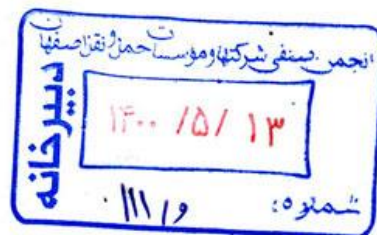 انجمن صنفی شرکتها و مؤسسات حمل و نقل اصفهان
دبیرخانه
۱۴۰۰ /۵/ ۱۳
شماره: